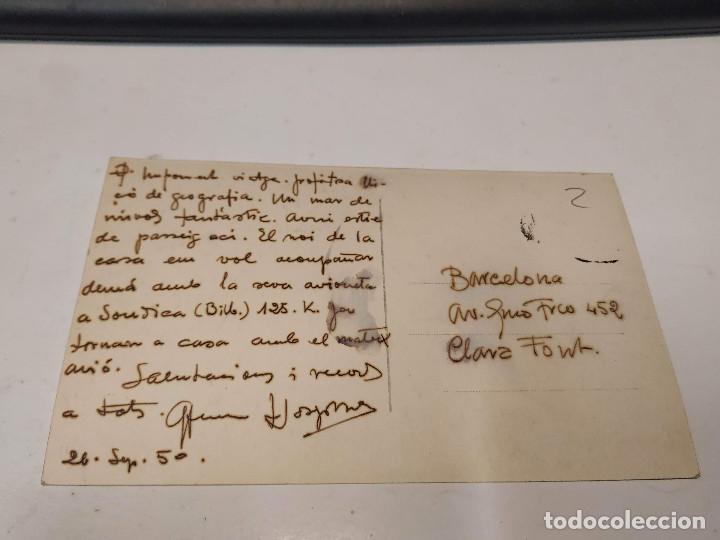 Imponent viatge. profitosa lli-
çó de geografia. Un mar de
núvols fantàstic. Avui estic
de passeig ací. El noi de la
casa em vol acompañar
demá amb la seva avioneta
a Sondica (Bilb.) 125. K.
tornarem a casa amb el mateix
avió. Salutacions i records
a tots.
26. Sep. 50.
2
Barcelona
Av. Gmo Fco 452
Clara Font.
todocoleccion
todocoleccion.net